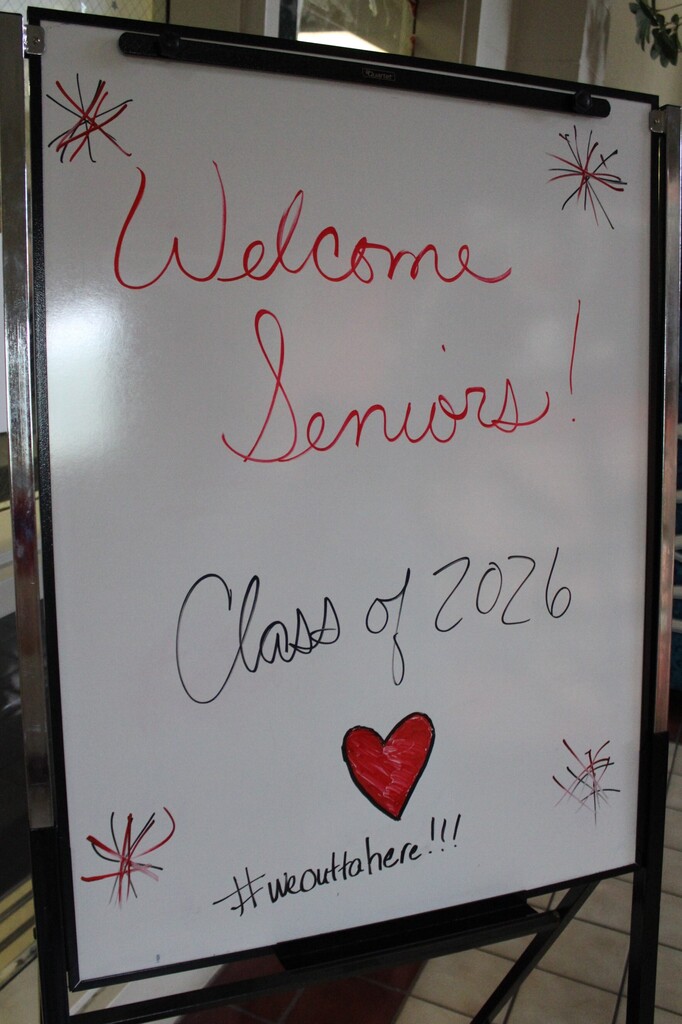 Quartet
Welcome
Seniors!
Class of 2026
#weouttahere!!!